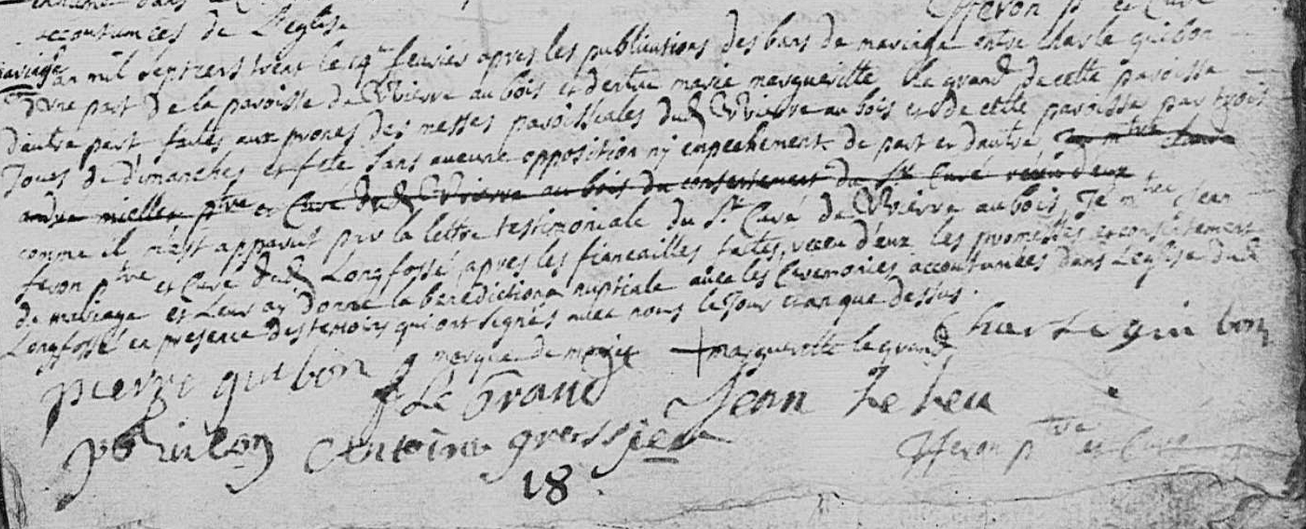 accoutumées de L'eglise
fferon p et Curé
mariage
L'an mil septcens trent le 14e feuries apres les publications des bans de mariage entre charle guibon
d'une part de la paroisse de Wierre au bois et d'entre marie margueritte le grand de cette paroisse
d'autre part faites aux prones des messes paroissiales dud Wierre au bois et de cette paroisse par trois
Jours de dimanches et fete sans aucune opposition ny empechement de part et d'autre
andre miellet ptre et Curé dud Wierre au bois du consentement du Sr Curé receu d'eux
comme il m'est apparut par la lettre testimoniale du Sr Curé de Wierre au bois Je mtre Jean
feron ptre et Curé dud Longfossé apres les fiancailles faites, receu d'eux les promesses et consentement
de mariage et Leur ay donné la benediction nuptiale avec les Ceremonies accoutumées dans L'eglise dud
Longfossé en presence des temoins qui ont signés avec nous le Jour et an que dessus.
pierre guibon marque de marie + margueritte le grand Charle guibon
f Le Grand Jean Le Leu
Antoine gressier fferon ptre et Curé
18